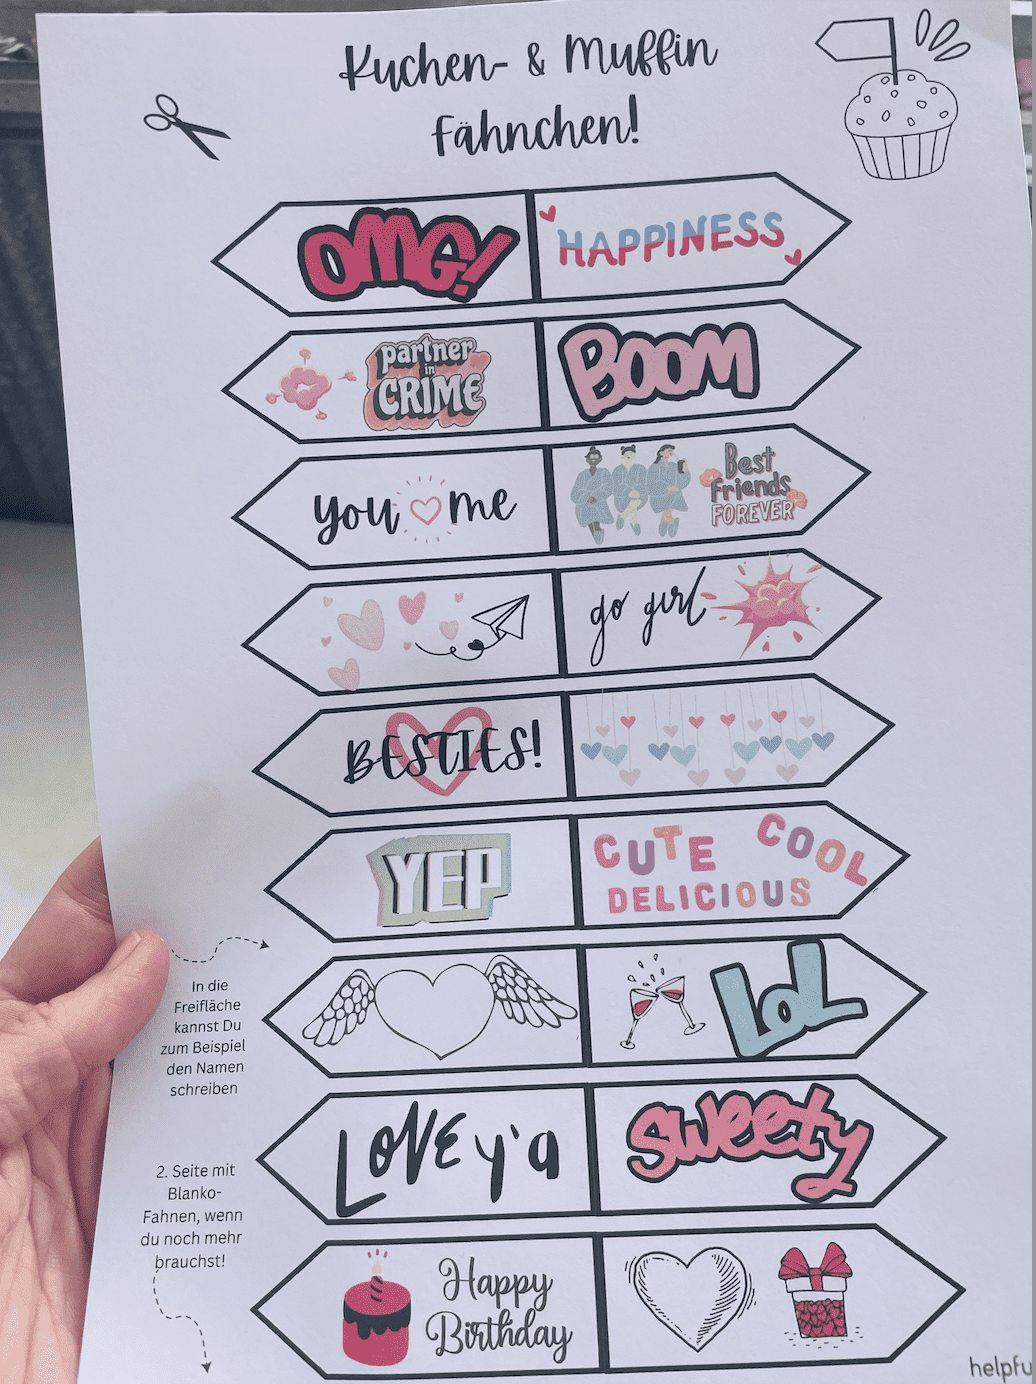 Kuchen- & Muffin
Fähnchen!
OMG!
HAPPINESS
partner
in
CRIME
BOOM
you me
Best
Friends
FOREVER
go girl
BESTIES!
YEP
CUTE COOL
DELICIOUS
In die
Freifläche
kannst Du
zum Beispiel
den Namen
schreiben
LOL
LOVE y'a
Sweety
2. Seite mit
Blanko-
Fahnen, wenn
du noch mehr
brauchst!
Happy
Birthday
helpfu